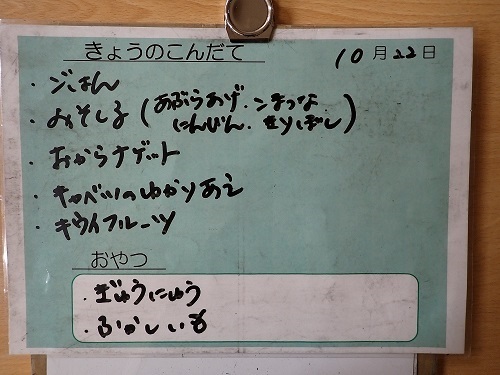 きょうのこんだて
10月22日
・ごはん
・みそしる(あぶらあげ.こまつな
にんじん.きりぼし)
・おからナゲット
・キャベツのゆかりあえ
・キウイフルーツ
おやつ
・ぎゅうにゅう
・ふかしいも